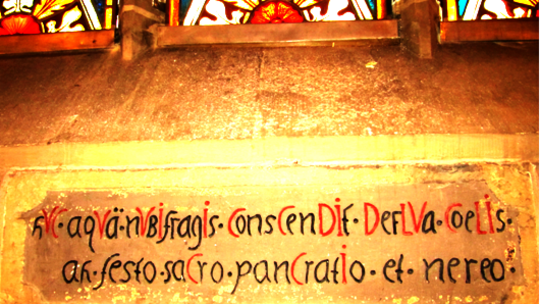 hVC·aqVä·nVBIfragIs·ConsCenDIt·DefLVa·CoeLIs·
ah·festo·saCro·panCratIo·et·nereo·